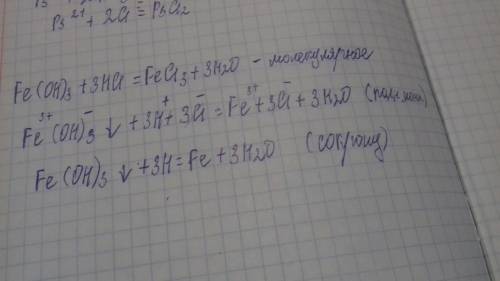 Pb²⁺ + 2Cl⁻ = PbCl₂
Fe(OH)₃ + 3HCl = FeCl₃ + 3H₂O - молекулярное
Fe³⁺(OH)⁻₃ ↓ + 3H⁺ + 3Cl⁻ = Fe³⁺ + 3Cl⁻ + 3H₂O
Fe(OH)₃ ↓ + 3H = Fe + 3H₂O